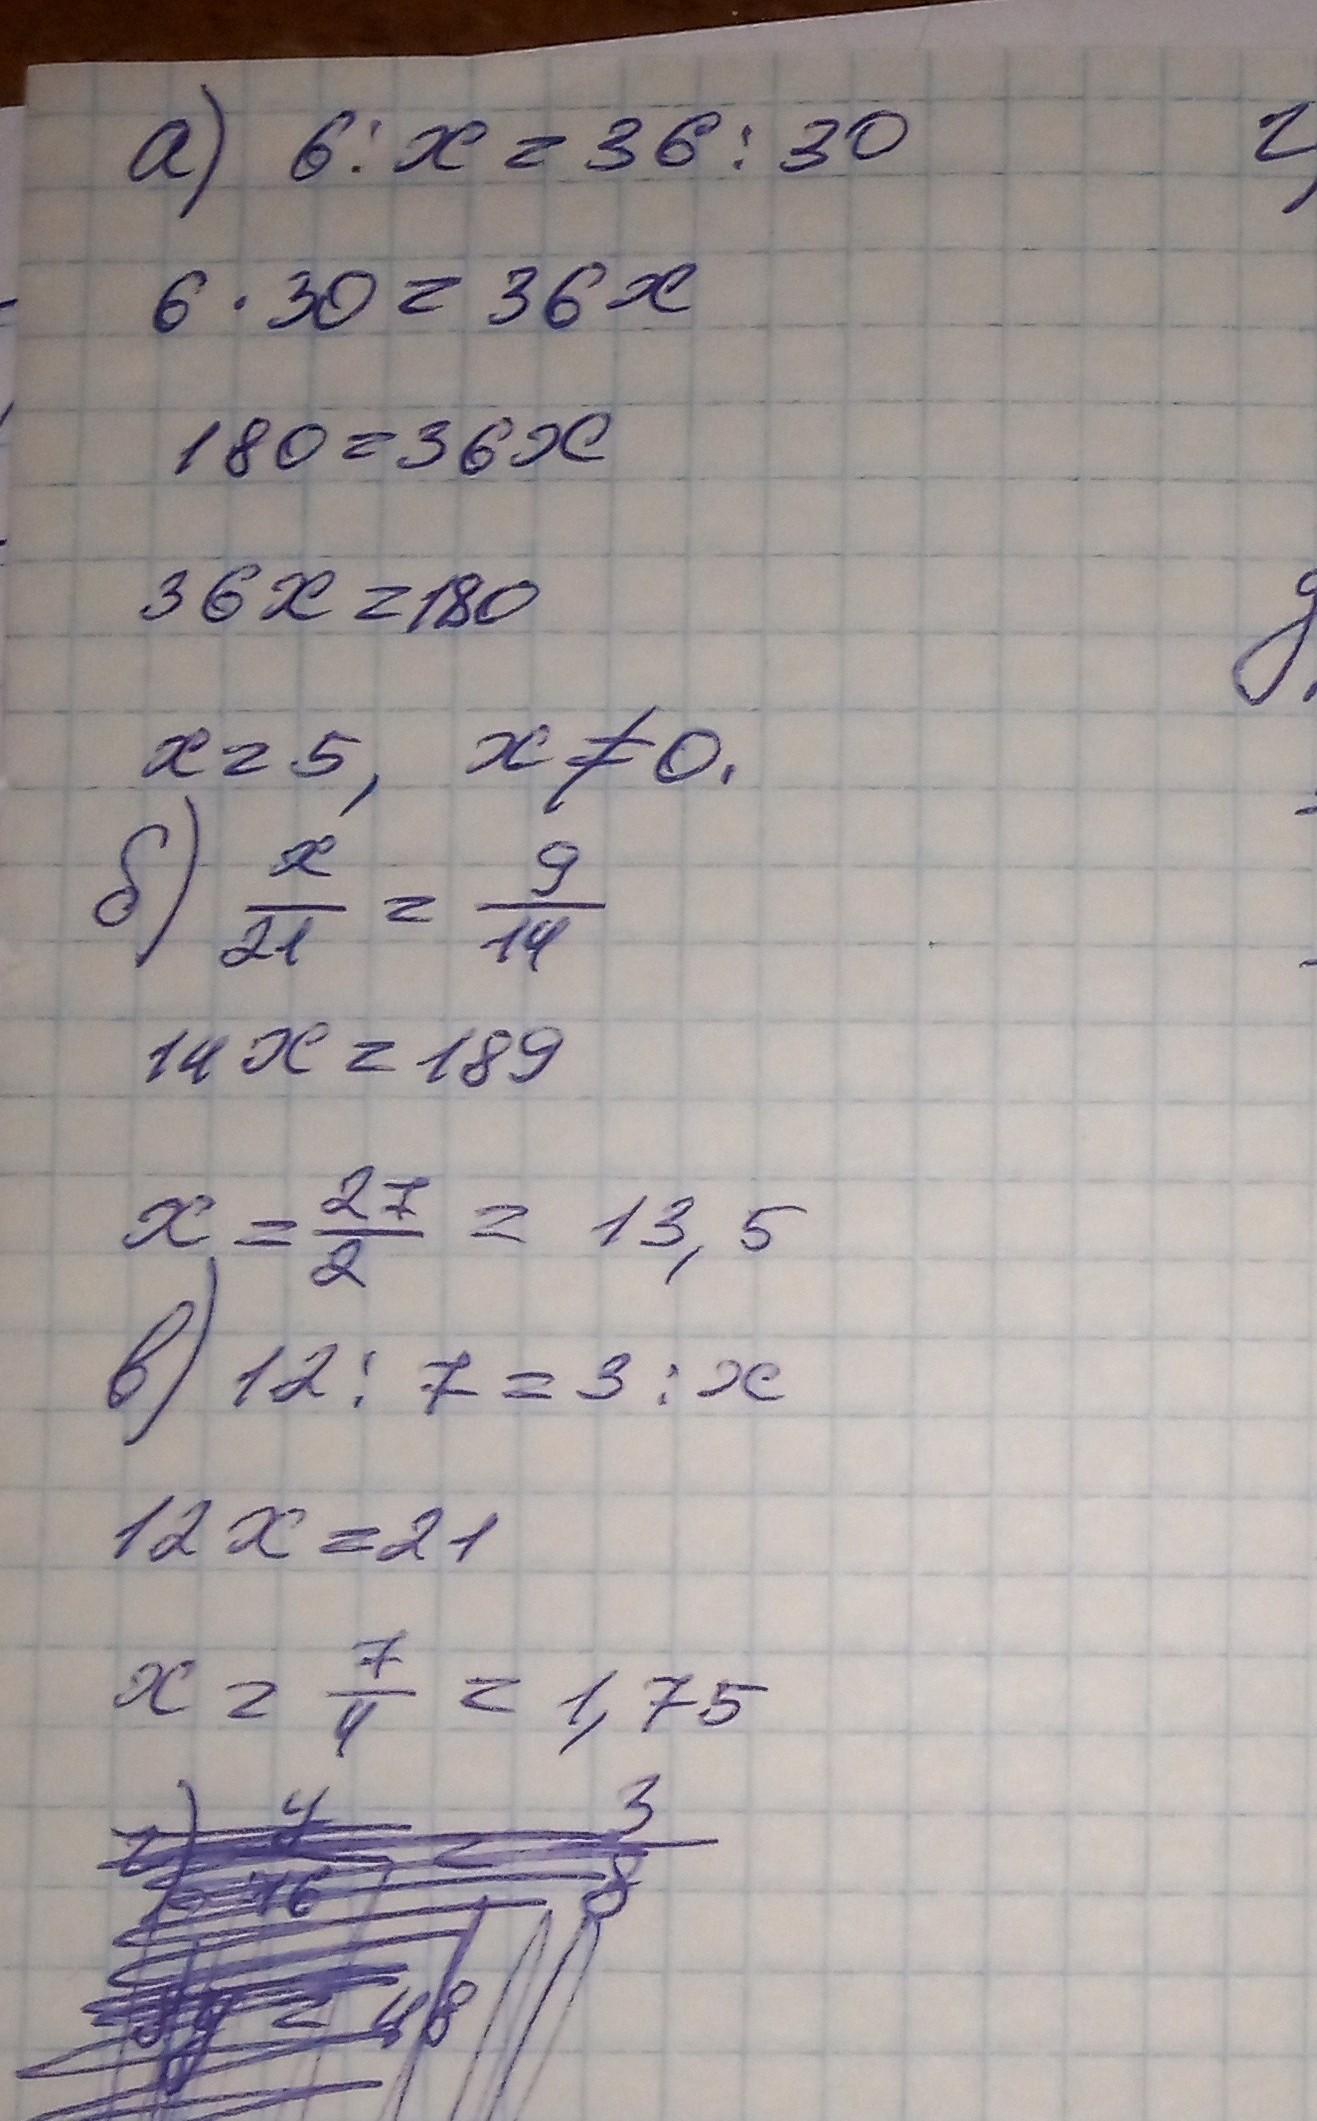 а) 6 : x = 36 : 30
6 · 30 = 36x
180 = 36x
36x = 180
x = 5, x ≠ 0.
б) x/21 = 9/14
14x = 189
x = 27/2 = 13,5
в) 12 : 7 = 3 : x
12x = 21
x = 7/4 = 1,75
г) y/16 = 3/8
8y = 48
г)
д)